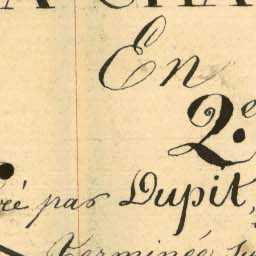 A CHA
En
2e
ré par Dupit,
Terminée